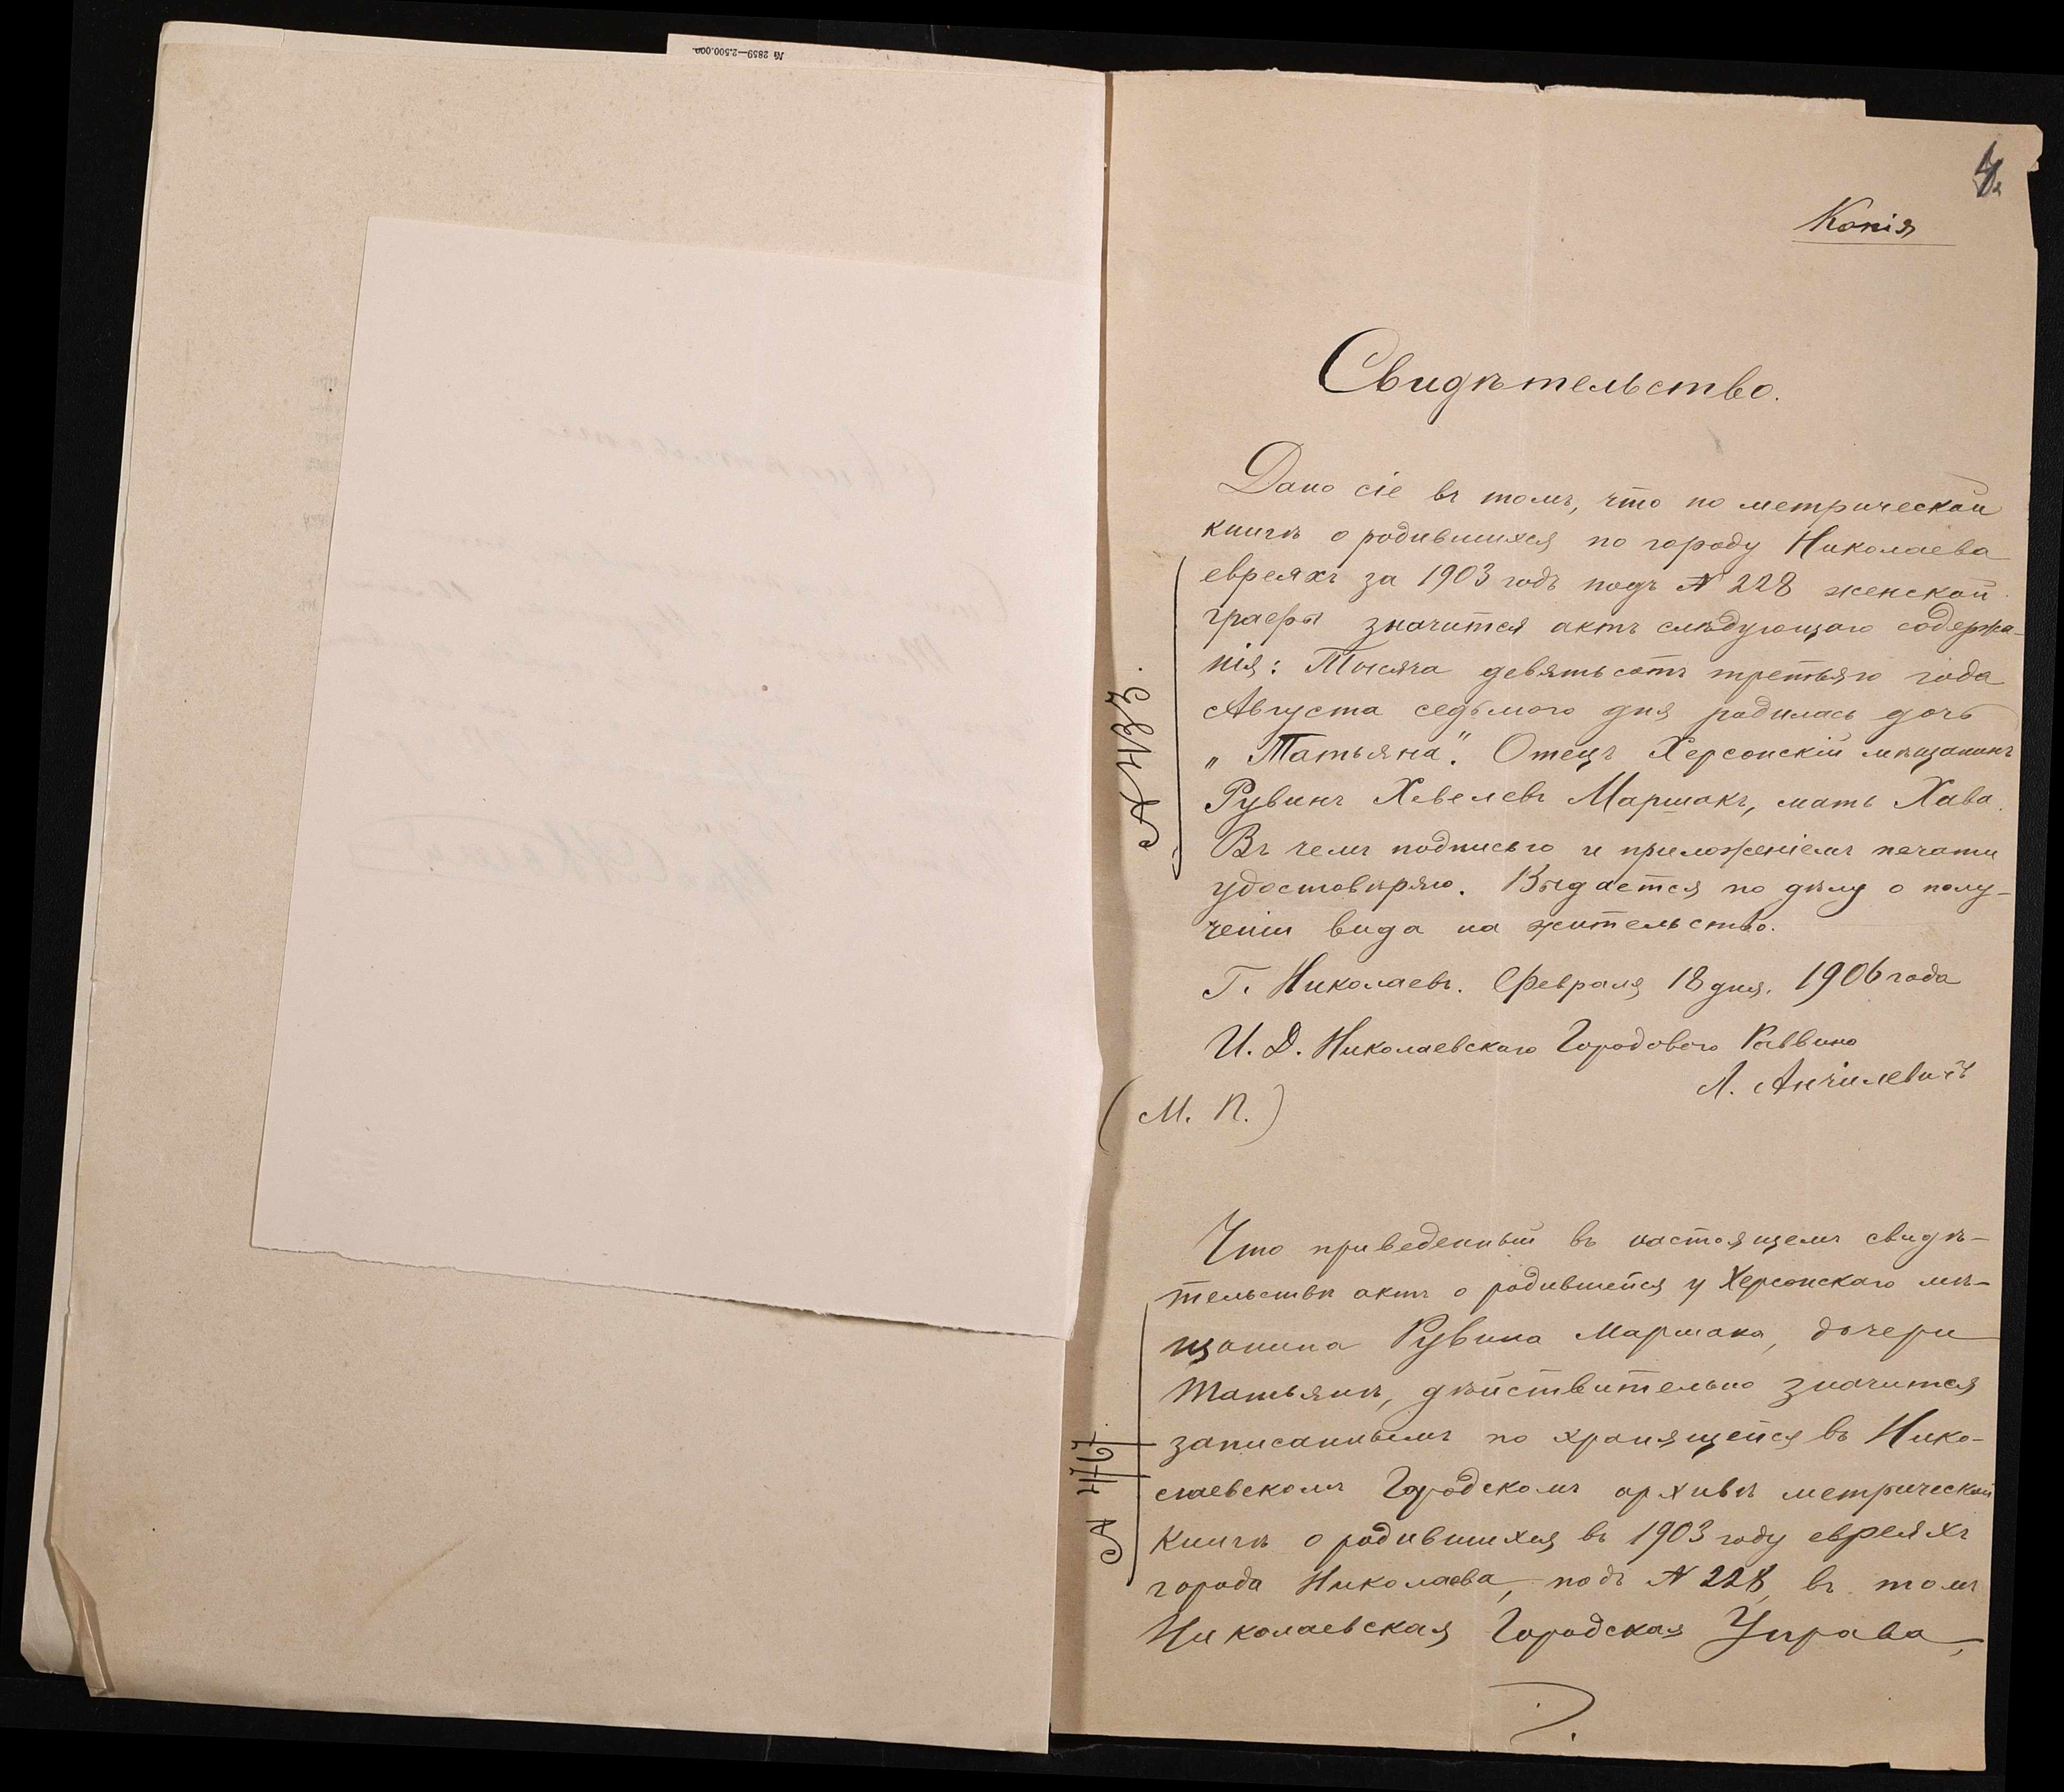 № 2859—2.500.000
4
Копія
Свидѣтельство.
Дано сіе въ томъ, что по метрической
книгѣ о родившихся по городу Николаева
евреяхъ за 1903 годъ подъ № 228 женской
графы значится актъ слѣдующаго содержа-
нія: Тысяча девятьсотъ третьяго года
Августа седьмого дня родилась дочь
„Татьяна". Отецъ Херсонскій мѣщанинъ
Рувинъ Хевелевъ Маршакъ, мать Хава.
Въ чемъ подписью и приложеніемъ печати
удостовѣряю. Выдается по дѣлу о полу-
ченіи вида на жительство.
Г. Николаевъ. Февраля 18 дня. 1906 года
И. Д. Николаевскаго Городового Раввина
Л. Анчилевичъ
(М. П.)
Что приведенный въ настоящемъ свидѣ-
тельствѣ актъ о родившейся у Херсонскаго мѣ-
щанина Рувина Маршака, дочери
Татьянѣ, дѣйствительно значится
записаннымъ по хранящейся въ Нико-
лаевскомъ Городскомъ архивѣ метрической
книгѣ о родившихся въ 1903 году евреяхъ
города Николаева, подъ № 228, въ томъ
Николаевская Городская Управа,
№ 4767.